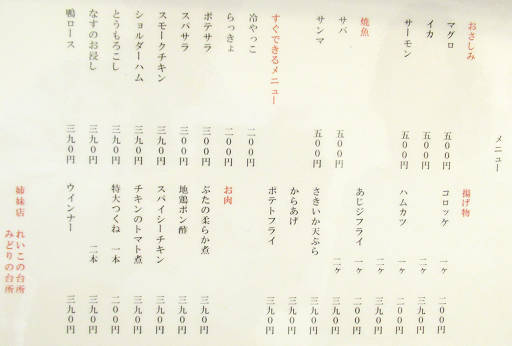 メニュー
おさしみ
マグロ 五〇〇円
イカ 五〇〇円
サーモン 五〇〇円
焼魚
サバ 五〇〇円
サンマ 五〇〇円
すぐできるメニュー
冷やっこ 二〇〇円
らっきょ 二〇〇円
ポテサラ 三〇〇円
スパサラ 三〇〇円
スモークチキン 三九〇円
ショルダーハム 三九〇円
とうもろこし 三九〇円
なすのお浸し 三九〇円
鴨ロース 三九〇円
揚げ物
コロッケ 一ヶ 二〇〇円
二ヶ 三九〇円
ハムカツ 一ヶ 二〇〇円
二ヶ 三九〇円
あじフライ 一ヶ 二〇〇円
二ヶ 三九〇円
さきいか天ぷら 三九〇円
からあげ 三九〇円
ポテトフライ 三九〇円
お肉
ぶたの柔らか煮 三九〇円
地鶏ポン酢 三九〇円
スパイシーチキン 三九〇円
チキンのトマト煮 三九〇円
特大つくね 一本 二〇〇円
二本 三九〇円
ウインナー 三九〇円
姉妹店 れいこの台所
みどりの台所